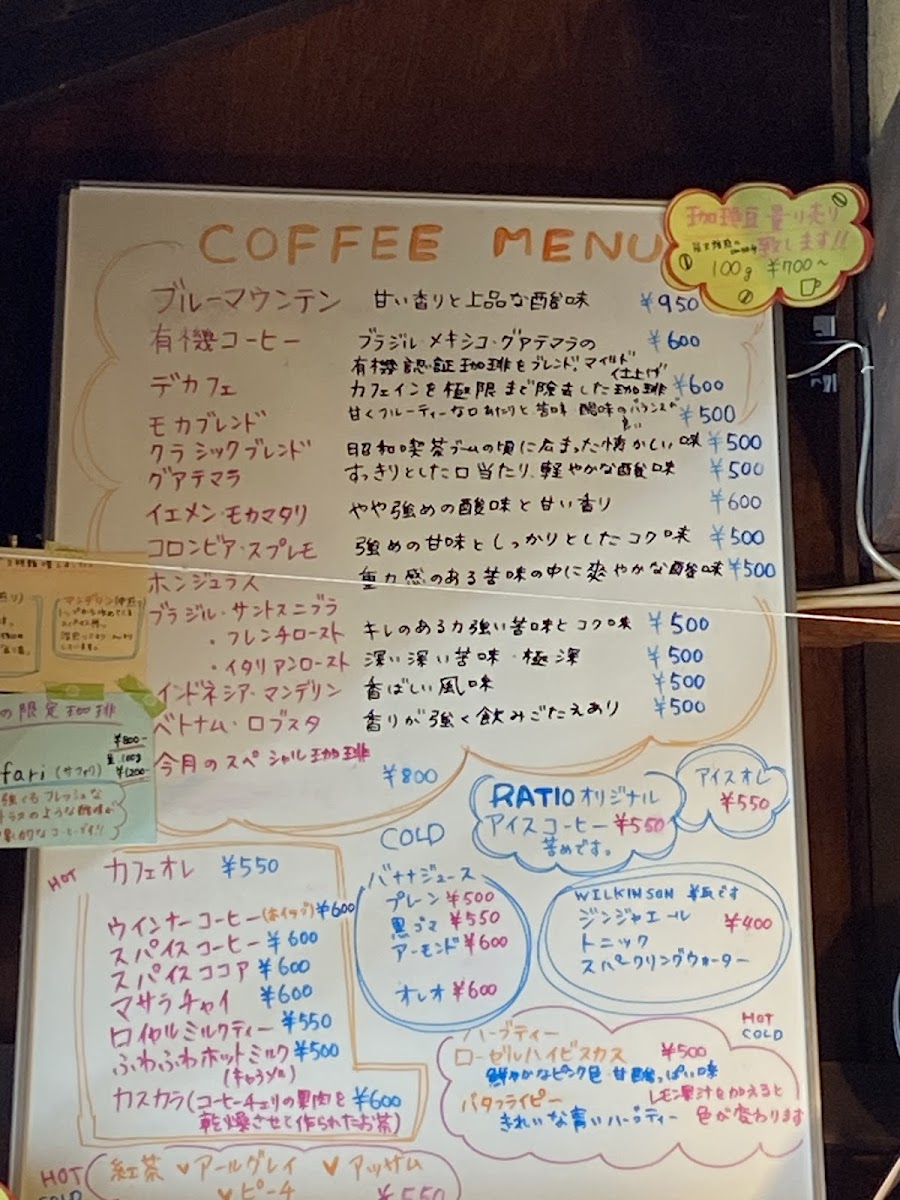 COFFEE MENU
珈琲豆量り売り
致します!!
100g ¥700~
ブルーマウンテン 甘い香りと上品な酸味 ¥950
有機コーヒー ブラジル・メキシコ・グアテマラの ¥600
有機認証珈琲をブレンド。マイルド仕上げ
デカフェ カフェインを極限まで除去した珈琲 ¥600
モカブレンド 甘くフルーティーな口あたりと苦味 酸味のバランスが良い ¥500
クラシックブレンド 昭和喫茶ブームの頃に広まった懐かしい味 ¥500
グアテマラ すっきりとした口当たり、軽やかな酸味 ¥500
イエメン・モカマタリ やや強めの酸味と甘い香り ¥600
コロンビア・スプレモ 強めの甘味としっかりとしたコク味 ¥500
ホンジュラス 重力感のある苦味の中に爽やかな酸味 ¥500
ブラジル・サントスニブラ
・フレンチロースト キレのある力強い苦味とコク味 ¥500
・イタリアンロースト 深い深い苦味・極深 ¥500
インドネシア・マンデリン 香ばしい風味 ¥500
ベトナム・ロブスタ 香りが強く飲みごたえあり ¥500
今月のスペシャル珈琲 ¥800
マンデリン
の限定珈琲
¥800-
100g
¥1200-
fari (サファリ)
強くもフレッシュな
のような酸味が
的なコーヒーです!!
RATIOオリジナル
アイスコーヒー ¥550
苦めです。
アイスオレ
¥550
HOT
カフェオレ ¥550
ウインナーコーヒー(ホイップ) ¥600
スパイスコーヒー ¥600
スパイスココア ¥600
マサラチャイ ¥600
ロイヤルミルクティー ¥550
ふわふわホットミルク ¥500
(キャラメル)
カスカラ(コーヒーチェリの果肉を ¥600
乾燥させて作られたお茶)
COLD
バナナジュース
プレーン ¥500
黒ゴマ ¥550
アーモンド ¥600
オレオ ¥600
WILKINSON 瓶です
ジンジャエール ¥400
トニック
スパークリングウォーター
HOT
COLD
ハーブティー
ローゼルハイビスカス ¥500
鮮やかなピンク色 甘酸っぱい味
バタフライピー レモン果汁を加えると
きれいな青いハーブティー 色が変わります
HOT
COLD
紅茶 アールグレイ アッサム
ピーチ ¥550